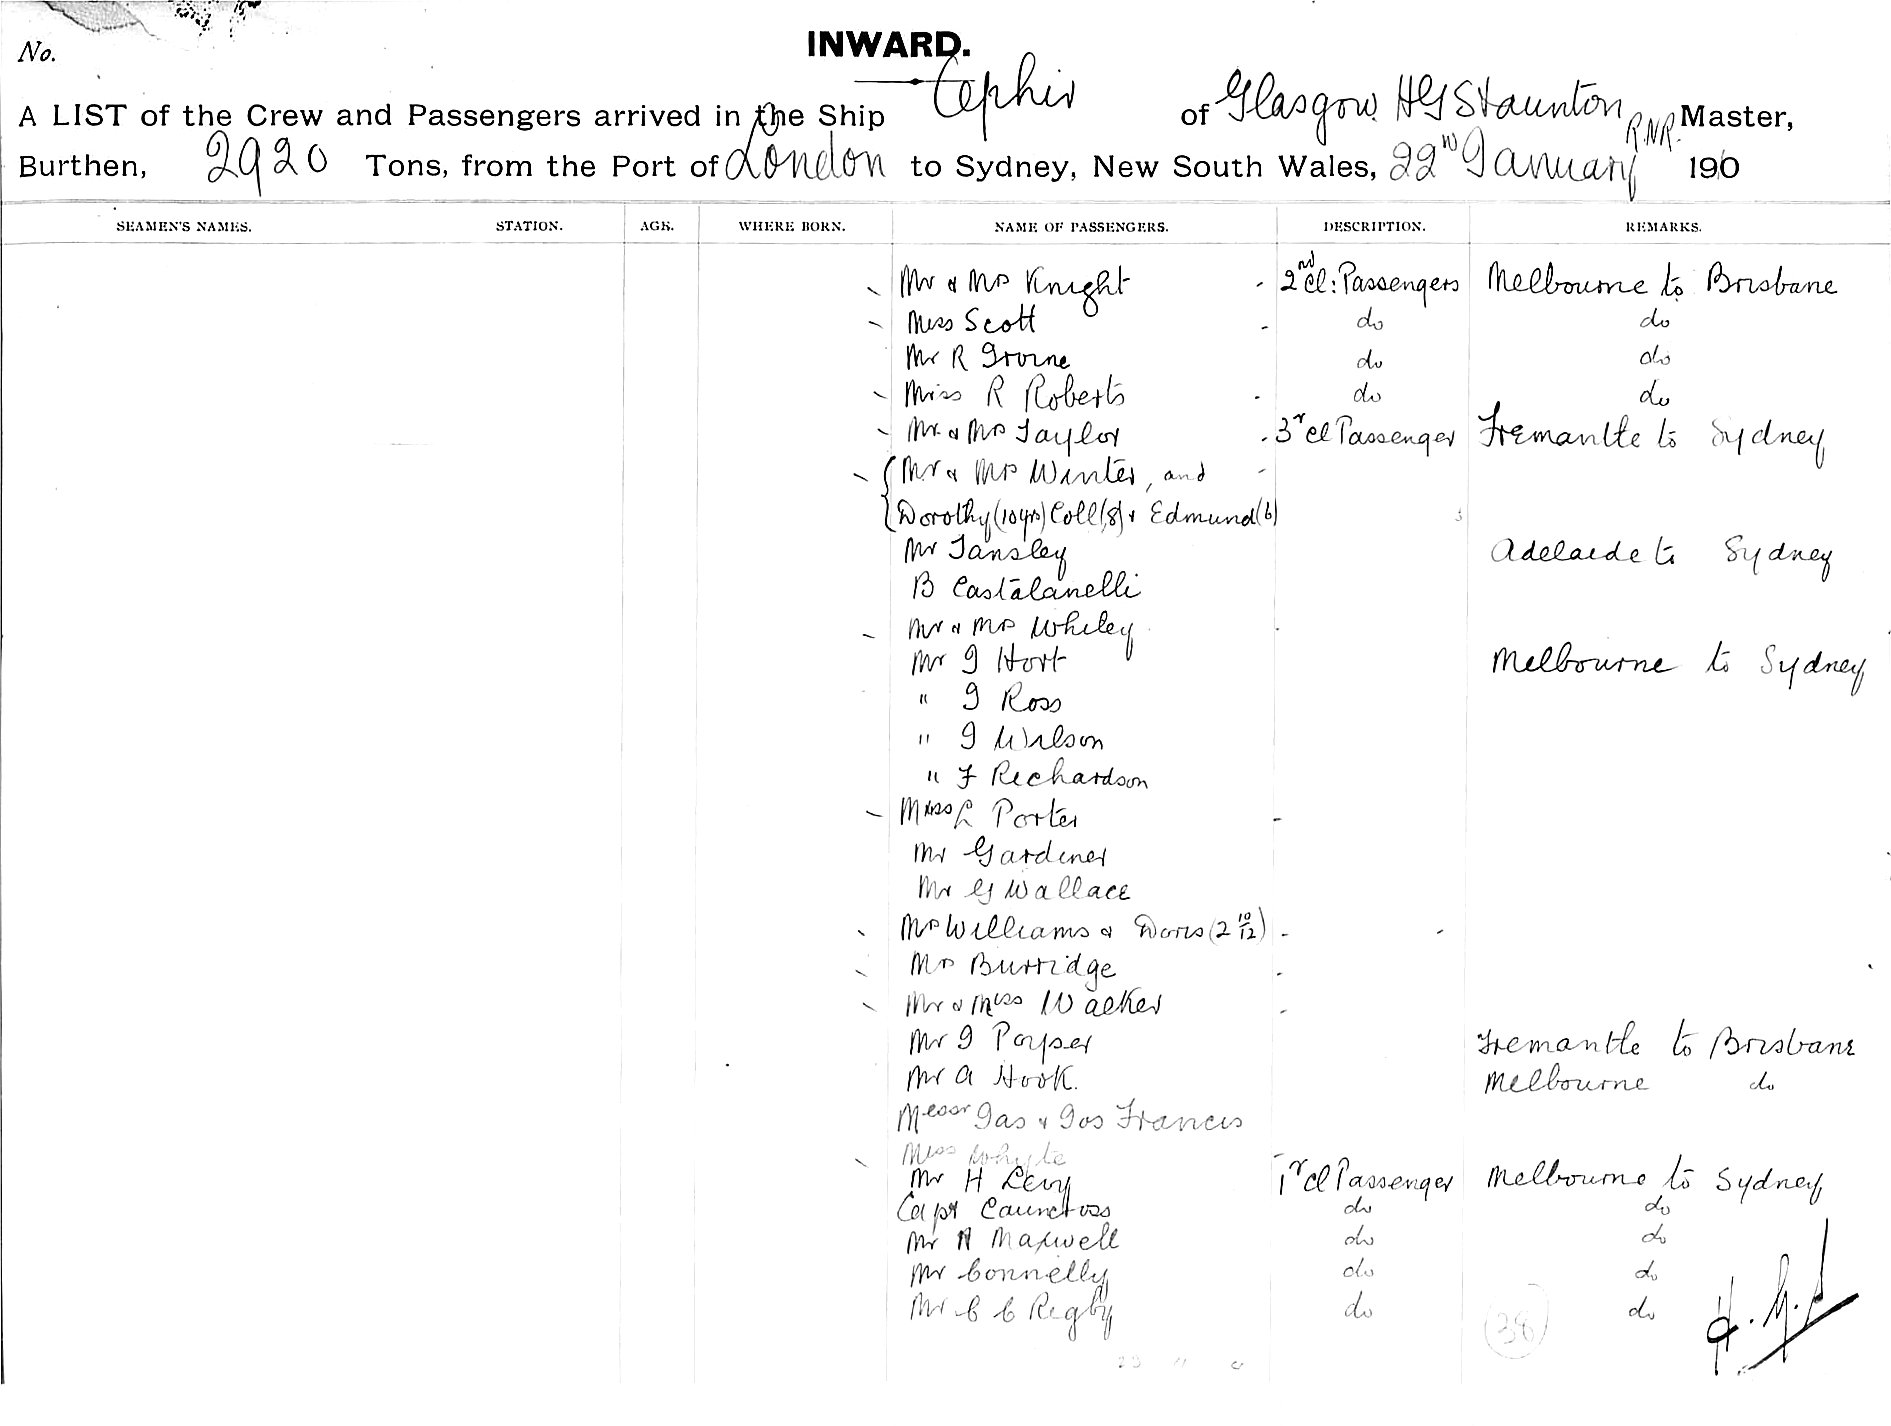 No.
INWARD.
A LIST of the Crew and Passengers arrived in the Ship Ophir of Glasgow HG Staunton R.N.R. Master,
Burthen, 2920 Tons, from the Port of London to Sydney, New South Wales, 22nd January 190
SEAMEN'S NAMES. STATION. AGE. WHERE BORN. NAME OF PASSENGERS. DESCRIPTION. REMARKS.
Mr & Mrs Knight - 2nd cl: Passengers Melbourne to Brisbane
Miss Scott - do do
Mr R Irvine do do
Miss R Roberts - do do
Mr & Mrs Taylor - 3r cl Passenger Fremantle to Sydney
Mr & Mrs Winter, and -
Dorothy (10yrs) Coll (8) & Edmund (6)
Mr Tansley Adelaide to Sydney
B Castalanelli
Mr & Mrs Whiley
Mr J Hort Melbourne to Sydney
" J Ross
" J Wilson
" F Richardson
Miss L Porter -
Mr Gardiner
Mr G Wallace
Mrs Williams & Doris (2 10/12) -
Mrs Burridge -
Mr & Miss Walker -
Mr J Poyser Fremantle to Brisbane
Mr A Hook. Melbourne do
Messr Jas & Jos Francis
Miss Whyte
Mr H Levy 1r cl Passenger Melbourne to Sydney
Capt Cauncross do do
Mr A Maxwell do do
Mr Connelly do do
Mr C C Rigby do do
38
H.G.S